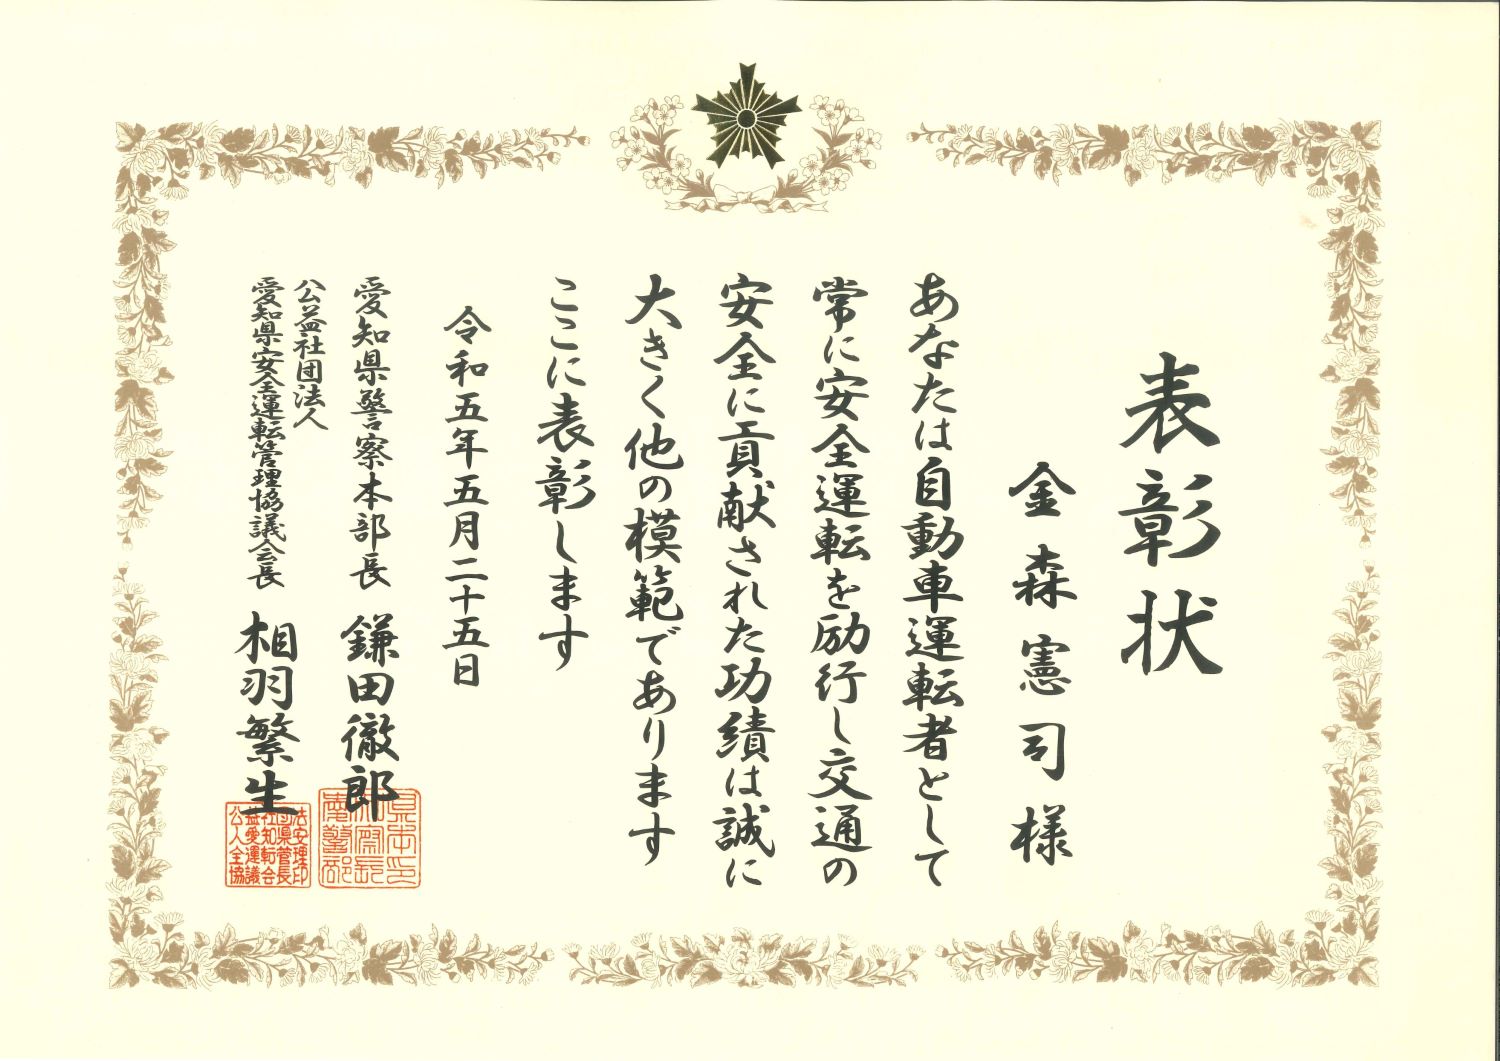 表彰状
金森憲司様
あなたは自動車運転者として
常に安全運転を励行し交通の
安全に貢献された功績は誠に
大きく他の模範であります
ここに表彰します
令和五年五月二十五日
愛知県警察本部長 鎌田徹郎
公益社団法人
愛知県安全運転管理協議会長 相羽繁生